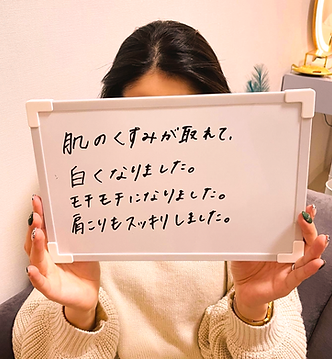 肌のくすみが取れて、
白くなりました。
モチモチになりました。
肩こりもスッキリしました。